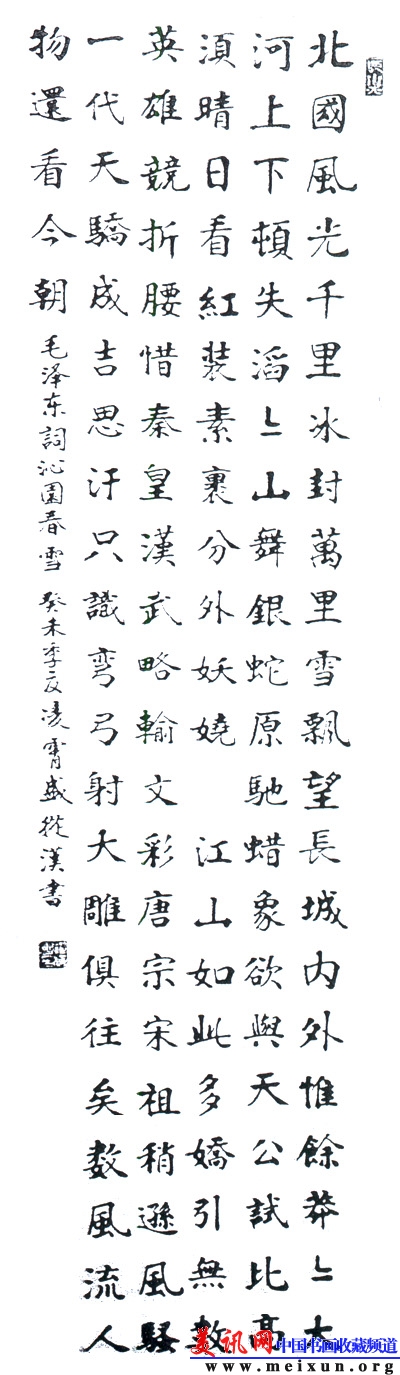 北國風光千里冰封萬里雪飄望長城内外惟餘莽〻大
河上下頓失滔〻山舞銀蛇原馳蜡象欲與天公試比高
須晴日看紅装素裹分外妖嬈 江山如此多嬌引無数
英雄競折腰惜秦皇漢武略輸文彩唐宗宋祖稍遜風騷
一代天驕成吉思汗只識弯弓射大雕俱往矣数風流人
物還看今朝 毛泽东詞沁園春雪 癸未季夏凌霄盛從漢書
美讯网 中国书画收藏频道
www.meixun.org